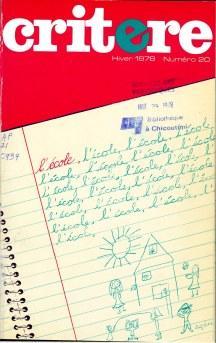 critere
Hiver 1978 Numéro 20
Bibliothèque
à Chicoutimi
AP
21
C934
l'école, l'école, l'école, l'école,
l'école, l'école, l'école, l'école,
l'école, l'école, l'école, l'école,
l'école, l'école, l'école, l'école,
l'école, l'école, l'école, l'école,
l'école, l'école, l'école, l'école,
l'école,